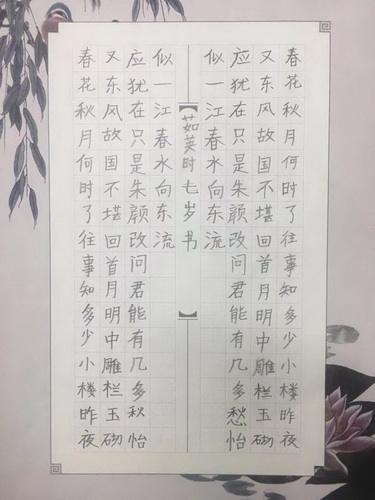 春花秋月何时了往事知多少小楼昨夜
又东风故国不堪回首月明中雕栏玉砌
应犹在只是朱颜改问君能有几多愁怡
似一江春水向东流
【茹荚时七岁书】
春花秋月何时了往事知多少小楼昨夜
又东风故国不堪回首月明中雕栏玉砌
应犹在只是朱颜改问君能有几多秋怡
似一江春水向东流